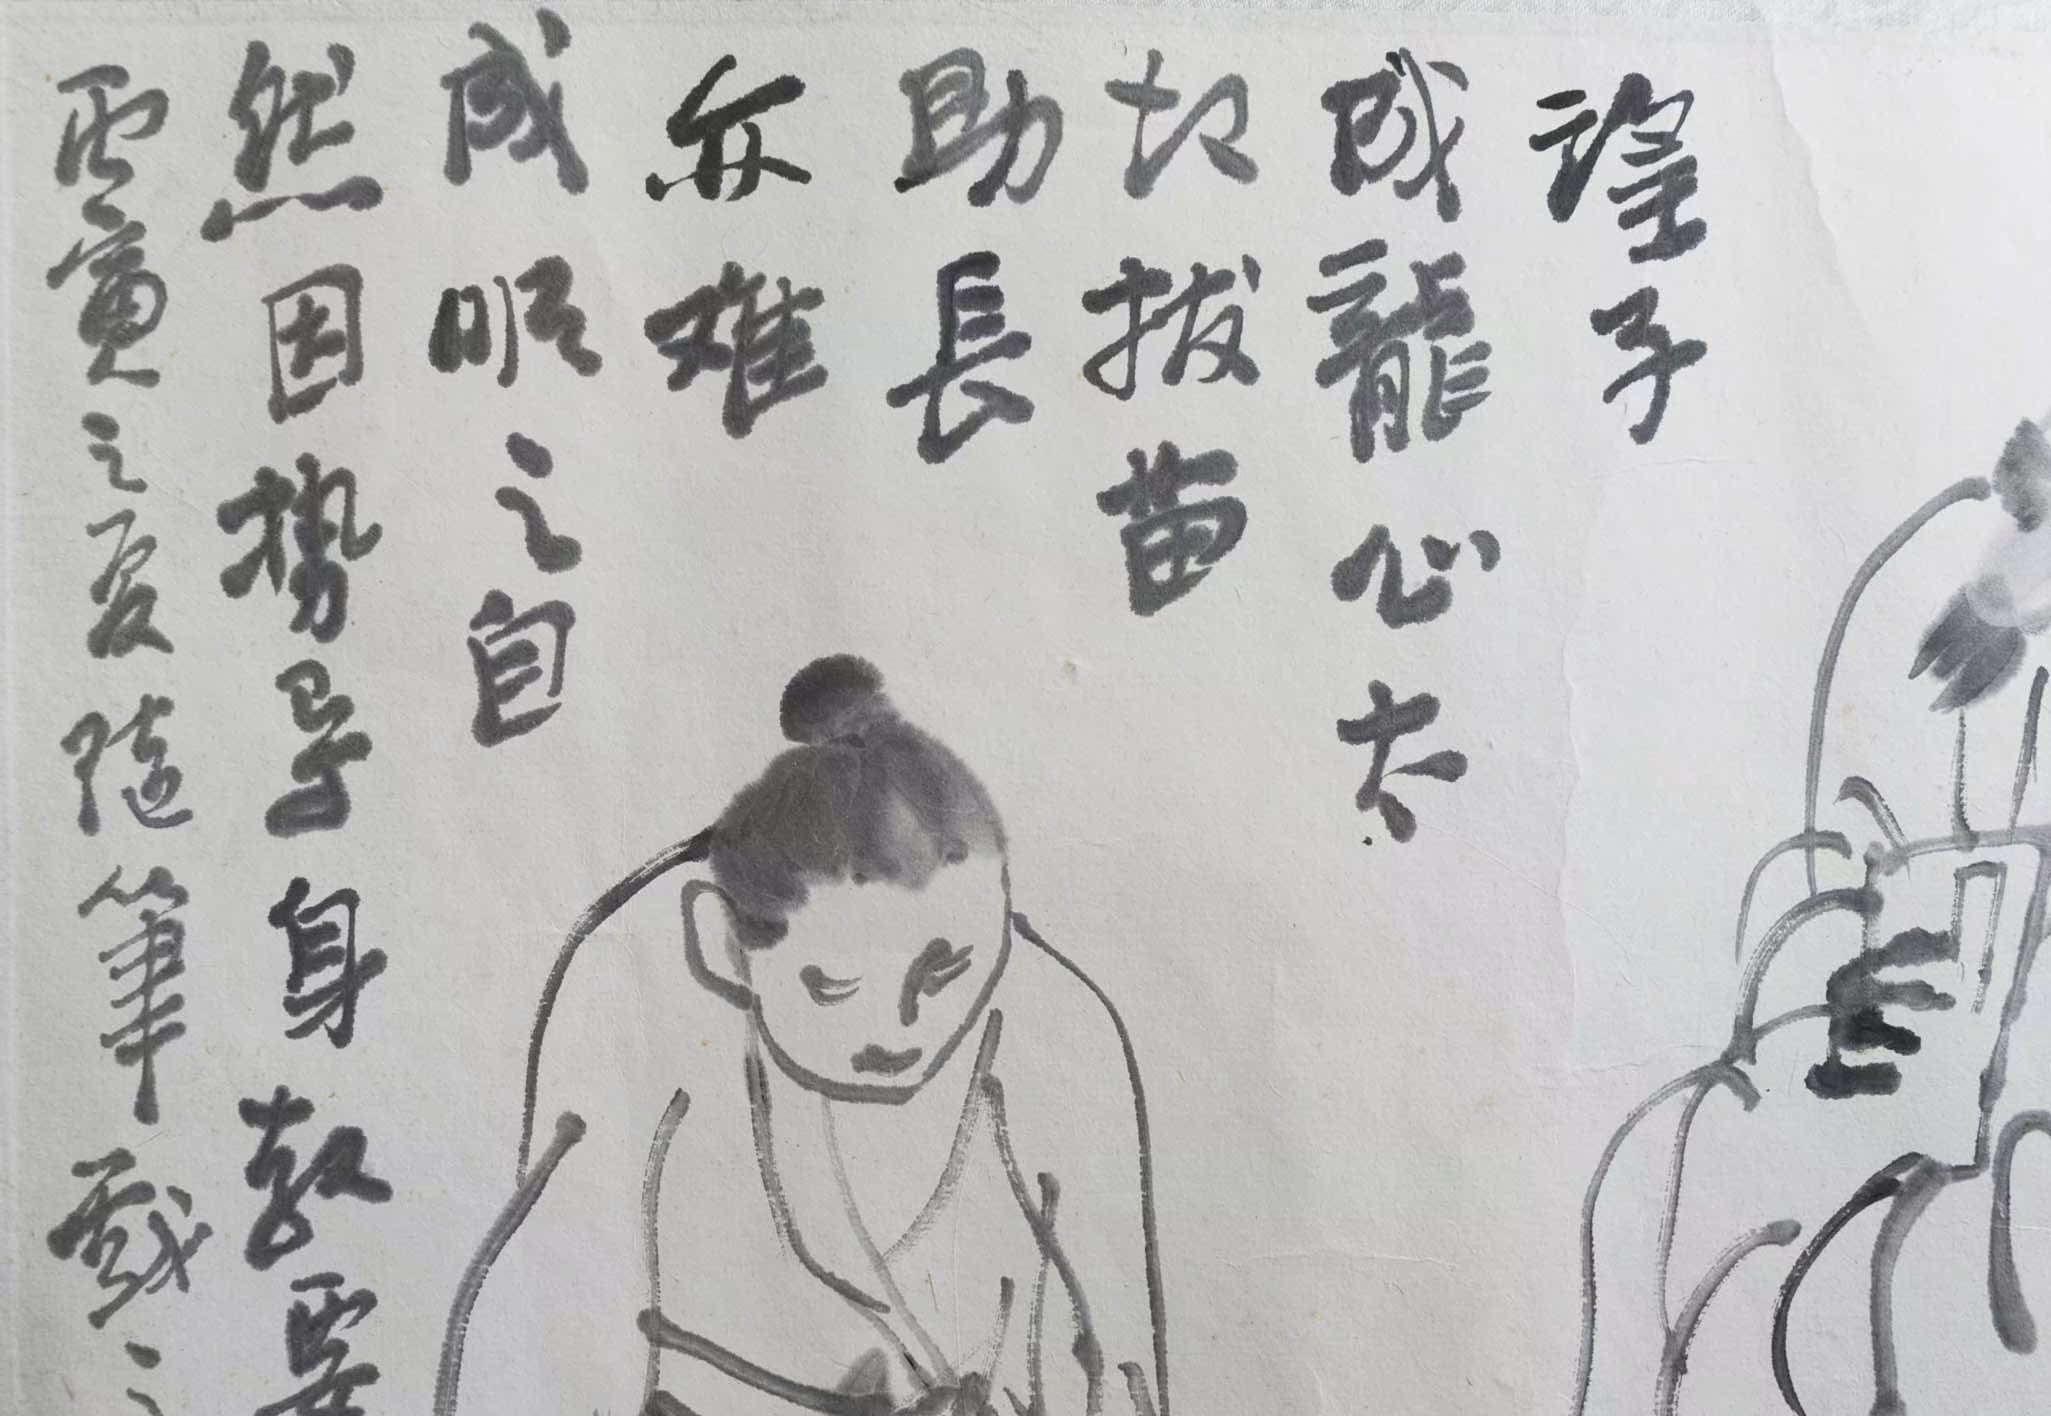 望子
成龍心太
切拔苗
助長
亦难
成顺之自
然因势导身教要
之夏隨筆戲之